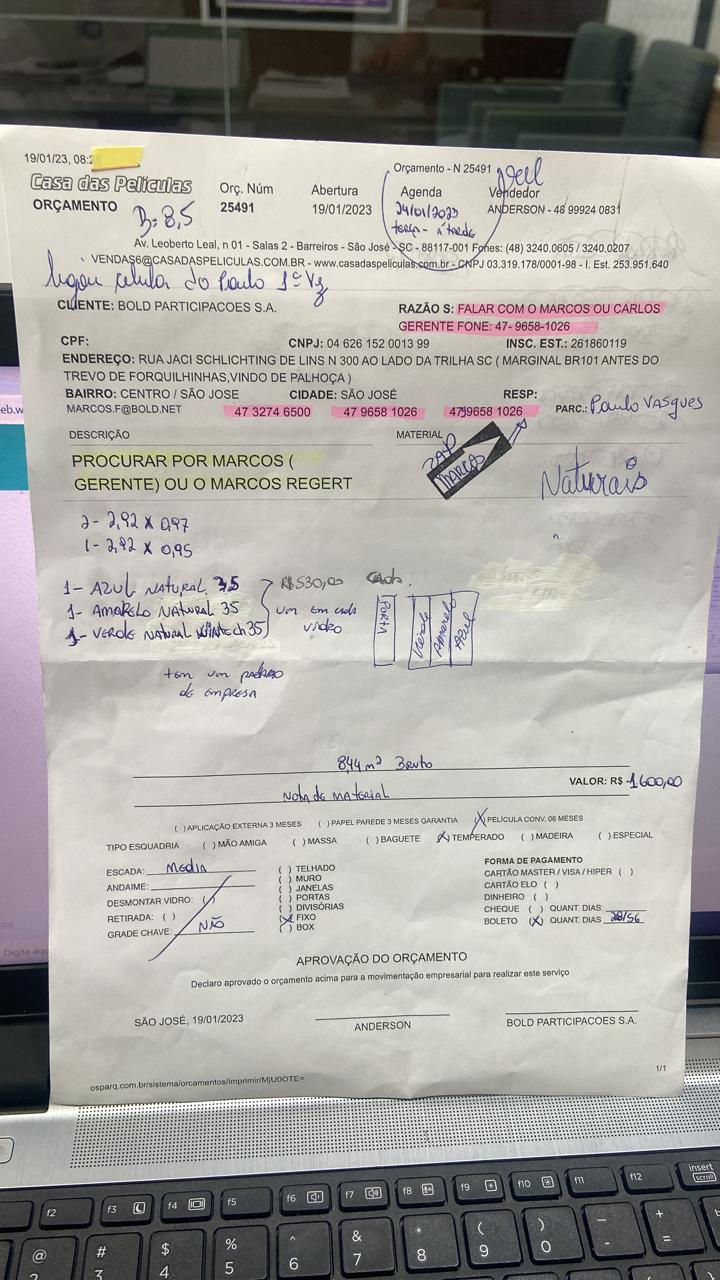 19/01/23, 08:2
Orçamento - N 25491
Casa das Películas
ORÇAMENTO
B= 8,5
Orç. Núm
25491
Abertura
19/01/2023
Agenda
24/01/2023
terça - à tarde
Vendedor
ANDERSON - 48 99924 0831
Av. Leoberto Leal, n 01 - Salas 2 - Barreiros - São José - SC - 88117-001 Fones: (48) 3240.0605 / 3240.0207
VENDAS6@CASADASPELICULAS.COM.BR - www.casadaspeliculas.com.br - CNPJ 03.319.178/0001-98 - I. Est. 253.951.640
ligou celular do Paulo 1ª Vz
CLIENTE: BOLD PARTICIPACOES S.A.
RAZÃO S: FALAR COM O MARCOS OU CARLOS
GERENTE FONE: 47- 9658-1026
CPF:
CNPJ: 04 626 152 0013 99
INSC. EST.: 261860119
ENDEREÇO: RUA JACI SCHLICHTING DE LINS N 300 AO LADO DA TRILHA SC ( MARGINAL BR101 ANTES DO
TREVO DE FORQUILHINHAS,VINDO DE PALHOÇA )
BAIRRO: CENTRO / SÃO JOSE
CIDADE: SÃO JOSÉ
RESP:
MARCOS.F@BOLD.NET
47 3274 6500
47 9658 1026
47 9658 1026
PARC.: Paulo Vasques
DESCRIÇÃO
MATERIAL
PROCURAR POR MARCOS (
GERENTE) OU O MARCOS REGERT
ZAP
MARCOS
Naturais
2- 2,92 x 0,97
1- 2,92 x 0,95
1- AZUL NATURAL 35
R$530,00 cada.
1- AMARELO NATURAL 35
um em cada
1- VERDE NATURAL Wintech 35
vidro
PORTA
Verde
Amarelo
Azul
tem um padrão
de empresa
8,44 m² Bruto
VALOR: R$ 1.600,00
Nota de Material
( )APLICAÇÃO EXTERNA 3 MESES ( ) PAPEL PAREDE 3 MESES GARANTIA (X)PELÍCULA CONV. 06 MESES
TIPO ESQUADRIA ( ) MÃO AMIGA ( ) MASSA ( ) BAGUETE (X)TEMPERADO ( ) MADEIRA ( ) ESPECIAL
ESCADA: MEDIA
ANDAIME:
DESMONTAR VIDRO: ( )
RETIRADA: ( )
GRADE CHAVE: NÃO
( ) TELHADO
( ) MURO
( ) JANELAS
( ) PORTAS
( ) DIVISÓRIAS
(X) FIXO
( ) BOX
FORMA DE PAGAMENTO
CARTÃO MASTER / VISA / HIPER ( )
CARTÃO ELO ( )
DINHEIRO ( )
CHEQUE ( ) QUANT. DIAS:
BOLETO (X) QUANT. DIAS 28/56
APROVAÇÃO DO ORÇAMENTO
Declaro aprovado o orçamento acima para a movimentação empresarial para realizar este serviço
SÃO JOSÉ, 19/01/2023
ANDERSON
BOLD PARTICIPACOES S.A.
osparq.com.br/sistema/orcamentos/imprimir/MjU0OTE=
1/1
eb.w
Digite aqu
f2 f3 f4 f5 f6 f7 f8 f9 f10 f11 f12 insert
scroll
@ # $ % ^ & * ( ) - + =
3 4 5 6 7 8 9 0